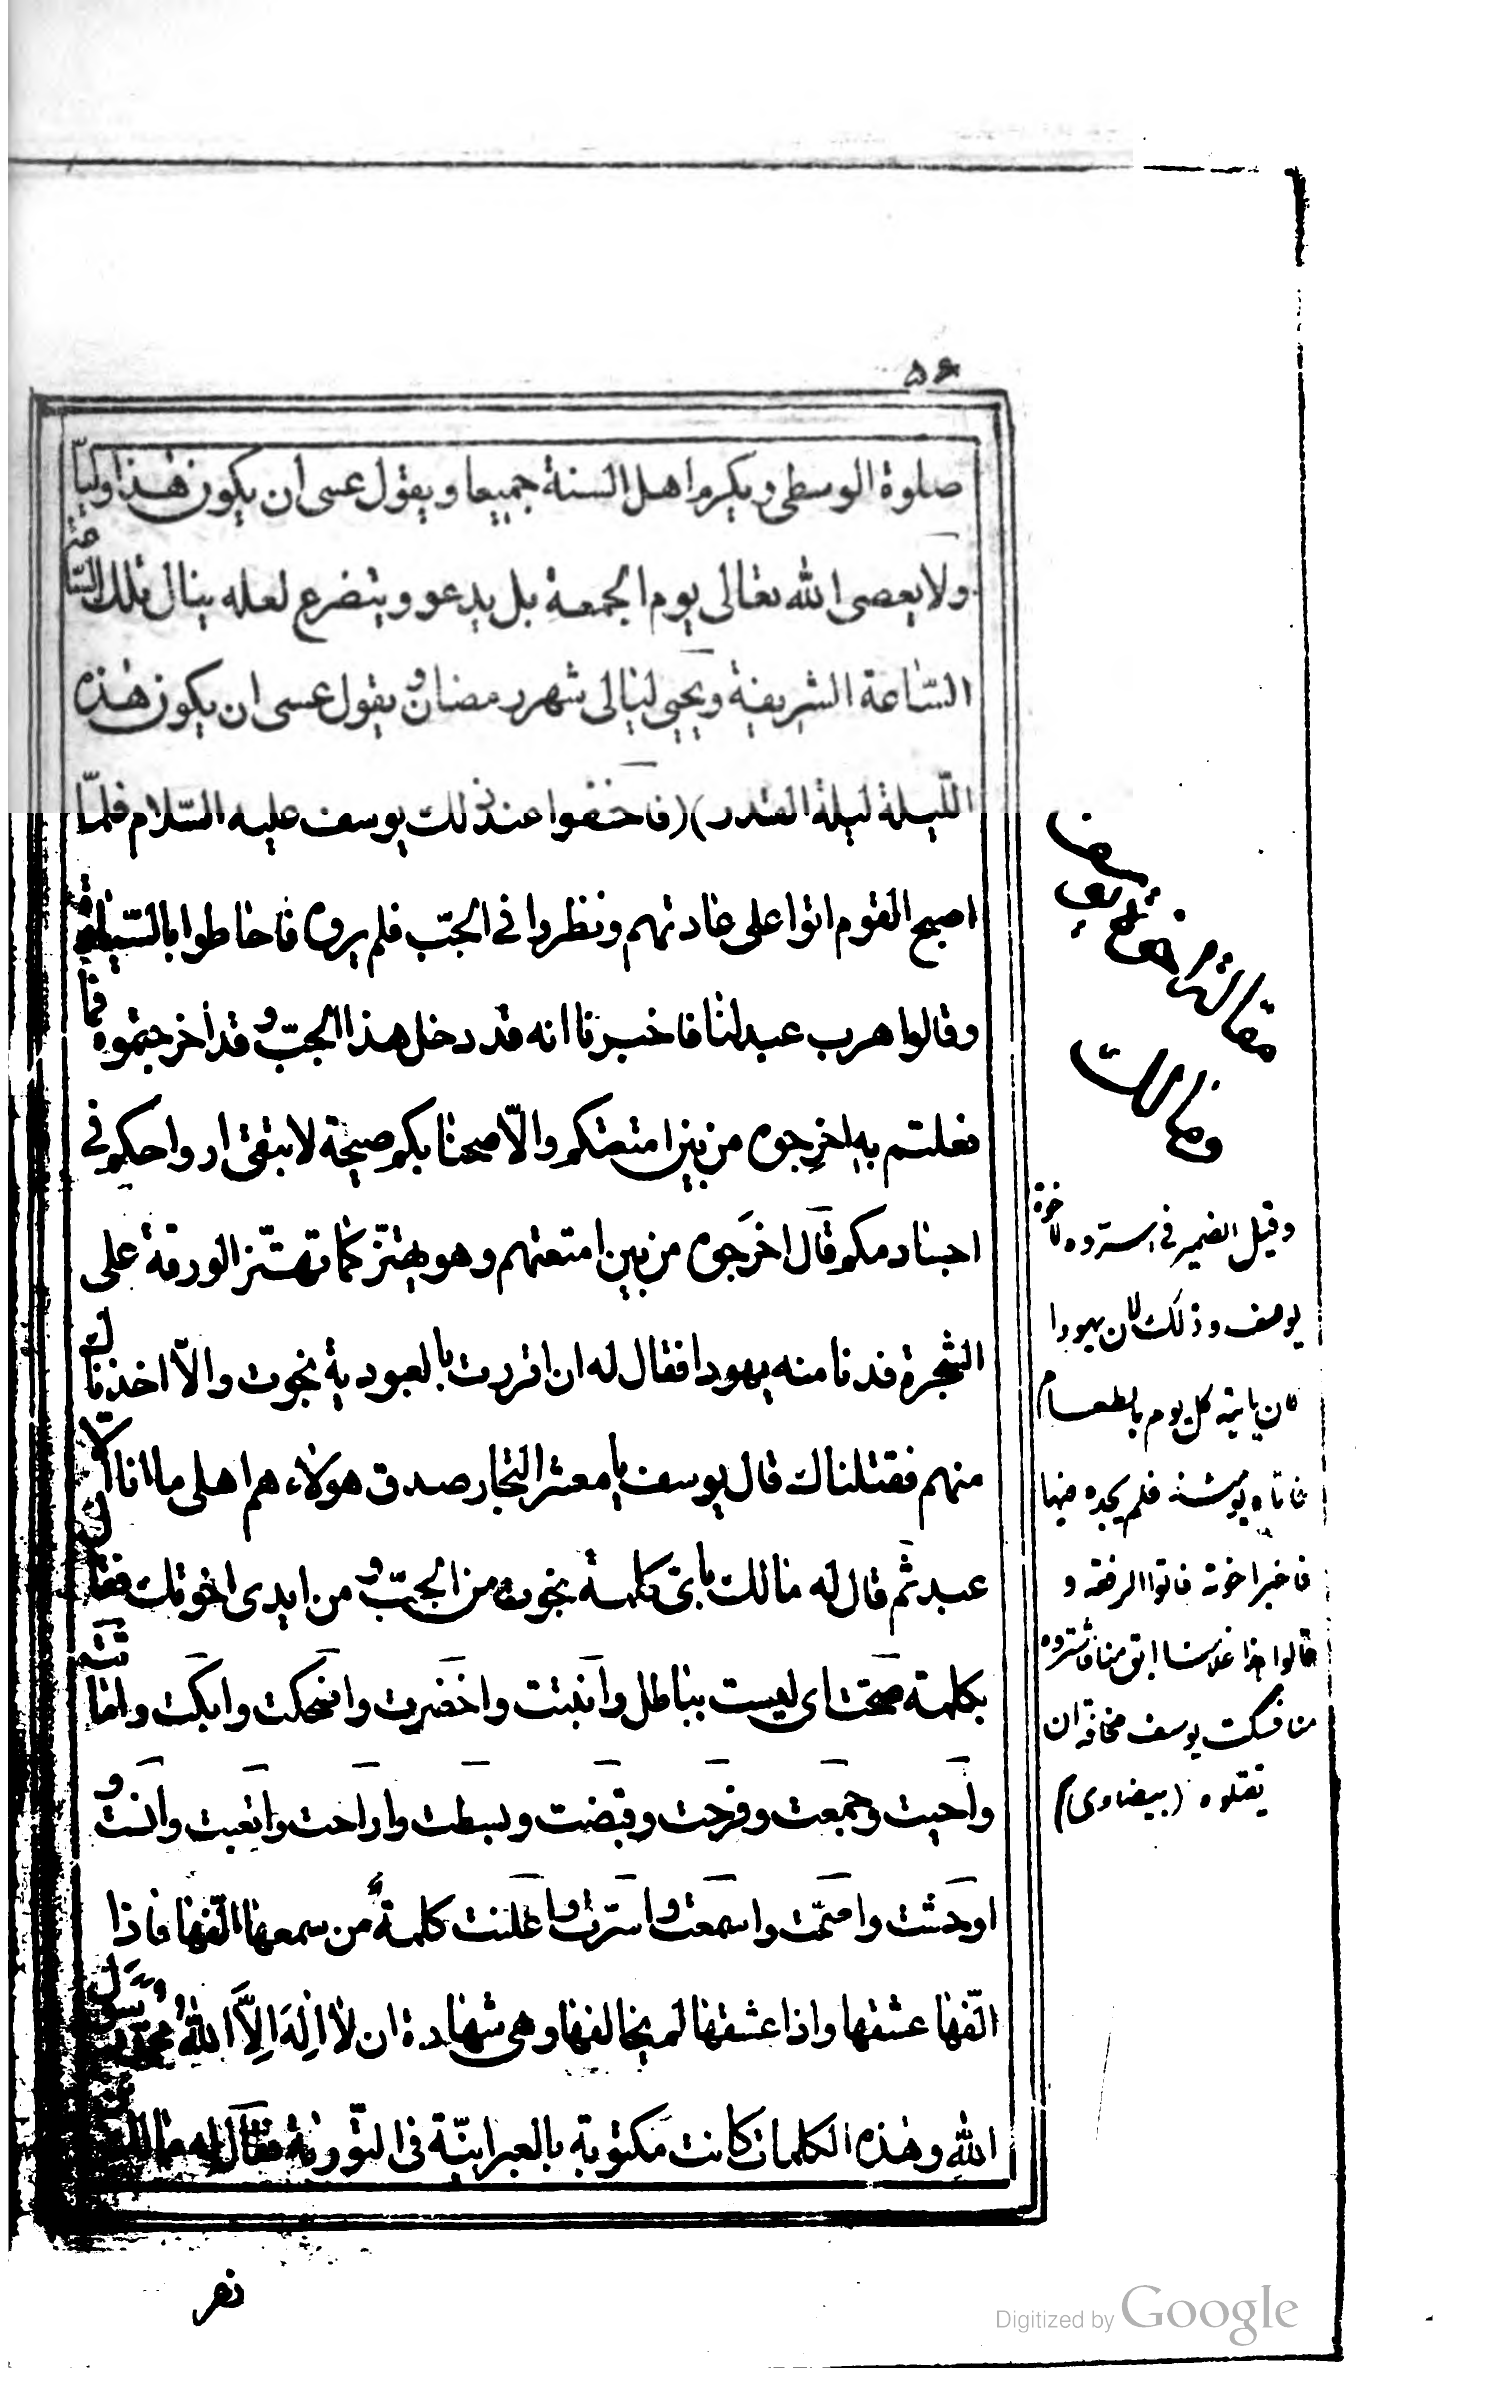 ۵۶
صلوة الوسطى ويكرم اهل السنة جميعا ويقول عسى ان يكون هذا وليّا
ولا يعصى الله تعالى يوم الجمعة بل يدعو ويتضرع لعله ينال تلك
السّاعة الشريفة ويحيى ليالى شهر رمضان ويقول عسى ان يكون هذه
اللّيلة ليلة القدر) (فاخفوا عند ذلك يوسف عليه السّلام فلمّا
اصبح القوم اتوا على عادتهم ونظروا فى الجبّ فلم يروه فاحاطوا بالسّيّارة
وقالوا هرب عبد لنا فاخبرنا انه قد دخل هذا الجبّ وقد أخرجتموه فما
فعلتم به اخرجوه من بين امتعتكم والّا صحنا بكم صيحة لا يبقى ارواحكم فى
اجسادكم قال اخرجوه من بين امتعتهم وهو يهتزّ كما تهتزّ الورقة على
الشجرة فدنا منه يهودا فقال له ان اقررت بالعبودية نجوت والّا اخذناك
منهم فقتلناك قال يوسف يا معشر التجار صدق هولاء هم اهلى ما انا الّا
عبد ثم قال له مالك باىّ كلمة نجوت من الجبّ ومن ايدى اخوتك فقال
بكلمة صحّت اى ليست بباطل وأنبتت واخضرت واضحكت وابكت وامات
واحيت وجمعت وفرجت وقبضت وبسطت واراحت واتعبت وانست و
اوحشت واصمّت واسمعت واسرّت واعلنت كلمة من سمعها الفها فاذا
الّفها عشقها واذا عشقها لم يخالفها وهى شهادة ان لا اله الّا الله محمد رسول
الله وهذه الكلمات كانت مكتوبة بالعبرانيّة فى التّورية فقال له مالك
مقالة اخوة يوسف
ومالك
وقيل الضمير فى استروه لاخوة
يوسف وذلك لان يهودا
كان ياتيه كل يوم بالطعام
فاتاه يومئذ فلم يجده فيها
فاخبر اخوته فاتوا الرفقه و
قالوا هذا غلامنا ابق منا فاشتروه
منا فسكت يوسف مخافة ان
يقتلوه (بيضاوى)
Digitized by Google